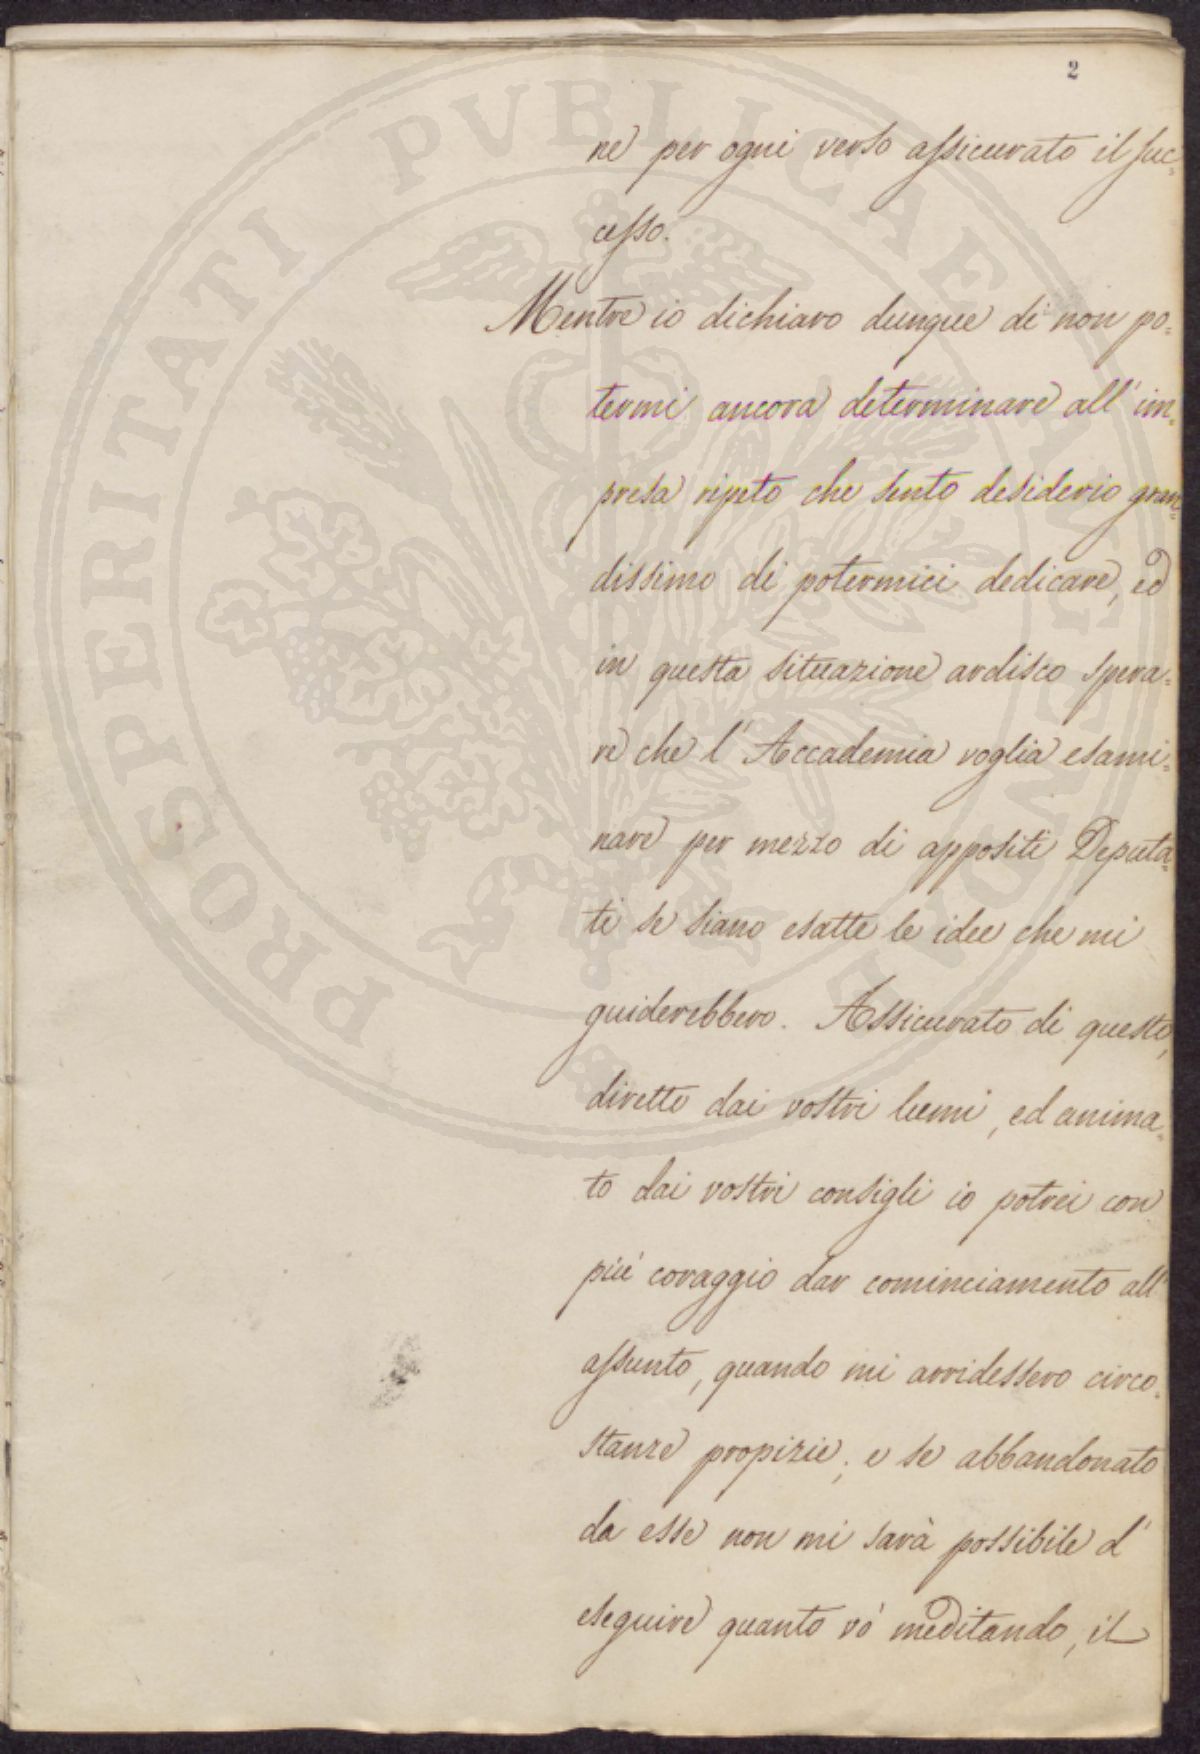 2
ne per ogni verso assicurato il suc=
cesso.
Mentre io dichiaro dunque di non po=
termi ancora determinare all' im=
presa ripeto che sento desiderio gran=
dissimo di potermici dedicare, ed
in questa situazione ardisco spera=
re che l' Accademia voglia esami=
nare per mezzo di appositi Deputa=
ti se siano esatte le idee che mi
guiderebbero. Assicurato di questo,
diretto dai vostri lumi, ed anima=
to dai vostri consigli io potrei con
più coraggio dar cominciamento all'
assunto, quando mi arridessero circo=
stanze propizie; e se abbandonato
da esse non mi sarà possibile d'
eseguire quanto vò meditando, il
PROSPERITATI PVBLICAE AVGENDAE